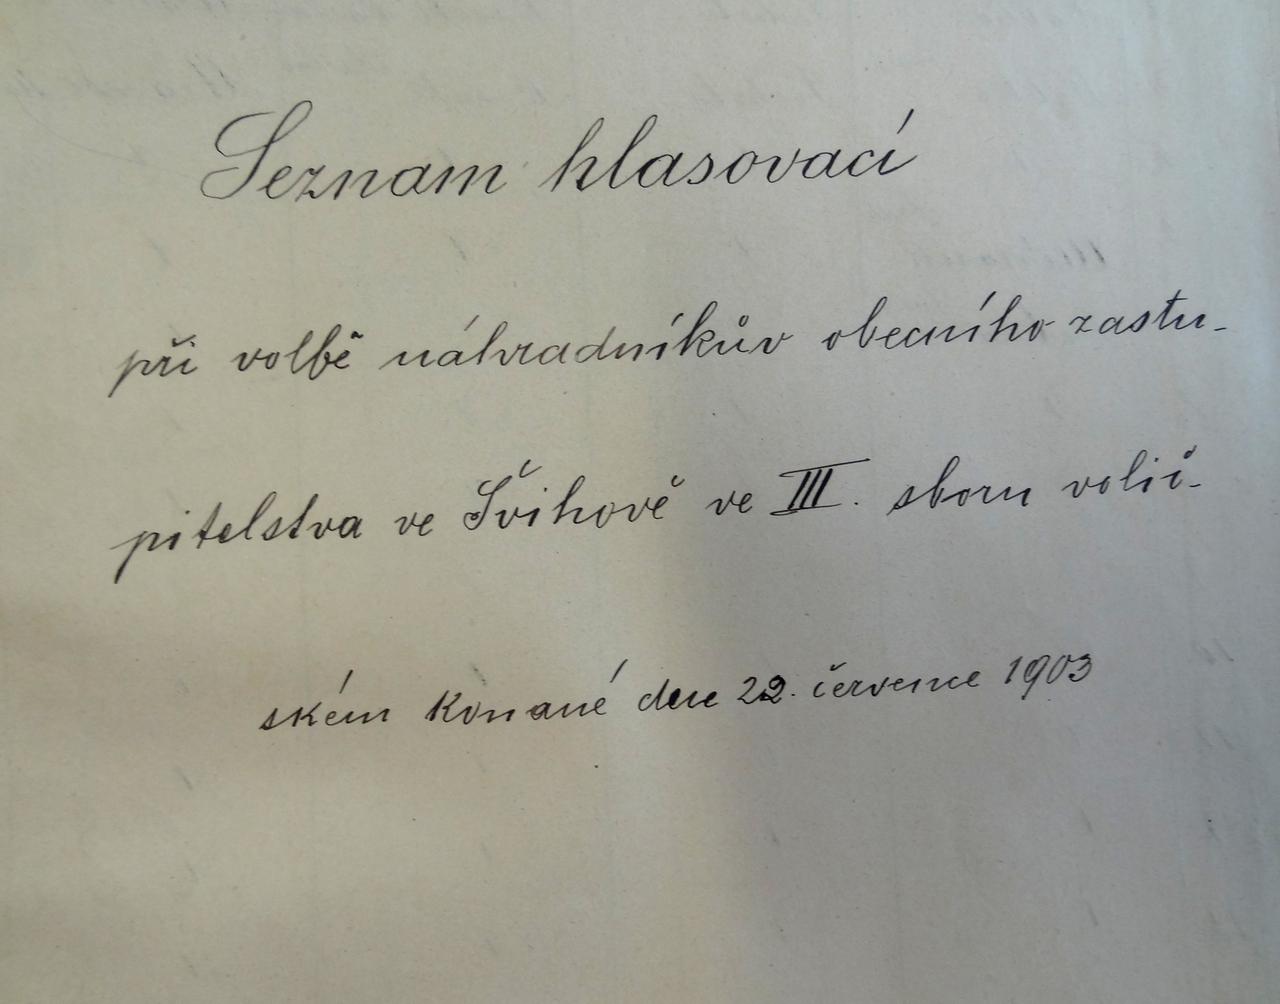 Seznam hlasovací
při volbě náhradníkův obecního zastu-
pitelstva ve Švihově ve III. sboru volič-
ském konané dne 22. července 1903